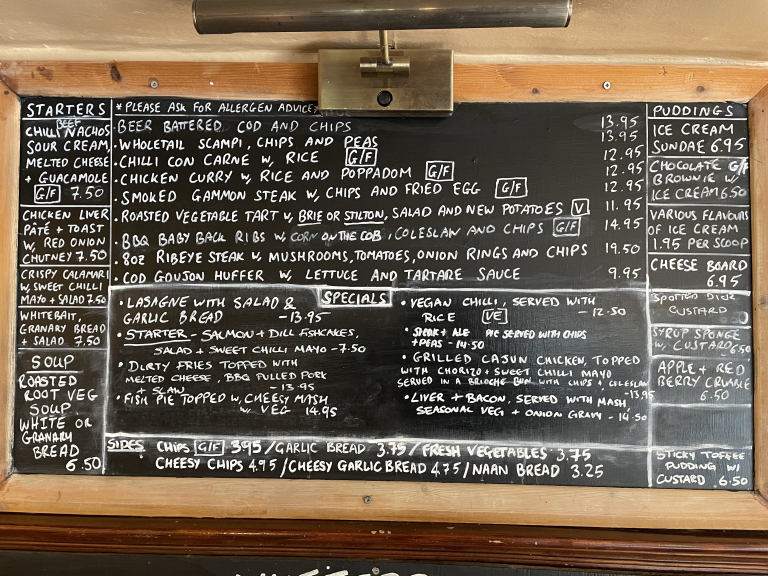 STARTERS
BEEF
CHILLI NACHOS
SOUR CREAM,
MELTED CHEESE
+ GUACAMOLE
G/F 7.50
CHICKEN LIVER
PÂTÉ + TOAST
W, RED ONION
CHUTNEY 7.50
CRISPY CALAMARI
W, SWEET CHILLI
MAYO + SALAD 7.50
WHITEBAIT,
GRANARY BREAD
+ SALAD 7.50
SOUP
ROASTED
ROOT VEG
SOUP
WHITE OR
GRANARY
BREAD
6.50
* PLEASE ASK FOR ALLERGEN ADVICE
BEER BATTERED COD AND CHIPS 13.95
WHOLETAIL SCAMPI, CHIPS AND PEAS 13.95
CHILLI CON CARNE W, RICE G/F 12.95
CHICKEN CURRY W, RICE AND POPPADOM G/F 12.95
SMOKED GAMMON STEAK W, CHIPS AND FRIED EGG G/F 12.95
ROASTED VEGETABLE TART W, BRIE OR STILTON, SALAD AND NEW POTATOES V 11.95
BBQ BABY BACK RIBS W CORN ON THE COB, COLESLAW AND CHIPS G/F 14.95
8oz RIBEYE STEAK W MUSHROOMS, TOMATOES, ONION RINGS AND CHIPS 19.50
COD GOUJON HUFFER W, LETTUCE AND TARTARE SAUCE 9.95
SPECIALS
• LASAGNE WITH SALAD &
GARLIC BREAD - 13.95
• STARTER - SALMON + DILL FISHCAKES,
SALAD + SWEET CHILLI MAYO - 7.50
• DIRTY FRIES TOPPED WITH
MELTED CHEESE, BBQ PULLED PORK
+ SLAW - 13.95
• FISH PIE TOPPED W, CHEESY MASH
W VEG 14.95
• VEGAN CHILLI, SERVED WITH
RICE VE - 12.50
• STEAK + ALE PIE SERVED WITH CHIPS
+ PEAS - 14.50
• GRILLED CAJUN CHICKEN, TOPPED
WITH CHORIZO + SWEET CHILLI MAYO
SERVED IN A BRIOCHE BUN WITH CHIPS + COLESLAW
- 13.95
• LIVER + BACON, SERVED WITH MASH
SEASONAL VEG + ONION GRAVY - 14.50
SIDES CHIPS G/F 3.95 / GARLIC BREAD 3.75 / FRESH VEGETABLES 3.75
CHEESY CHIPS 4.95 / CHEESY GARLIC BREAD 4.75 / NAAN BREAD 3.25
PUDDINGS
ICE CREAM
SUNDAE 6.95
CHOCOLATE G/F
BROWNIE W/
ICE CREAM 6.50
VARIOUS FLAVOURS
OF ICE CREAM
1.95 PER SCOOP
CHEESE BOARD
6.95
SPOTTED DICK
CUSTARD
SYRUP SPONGE
W, CUSTARD 6.50
APPLE + RED
BERRY CRUMBLE
6.50
STICKY TOFFEE
PUDDING W/
CUSTARD 6.50